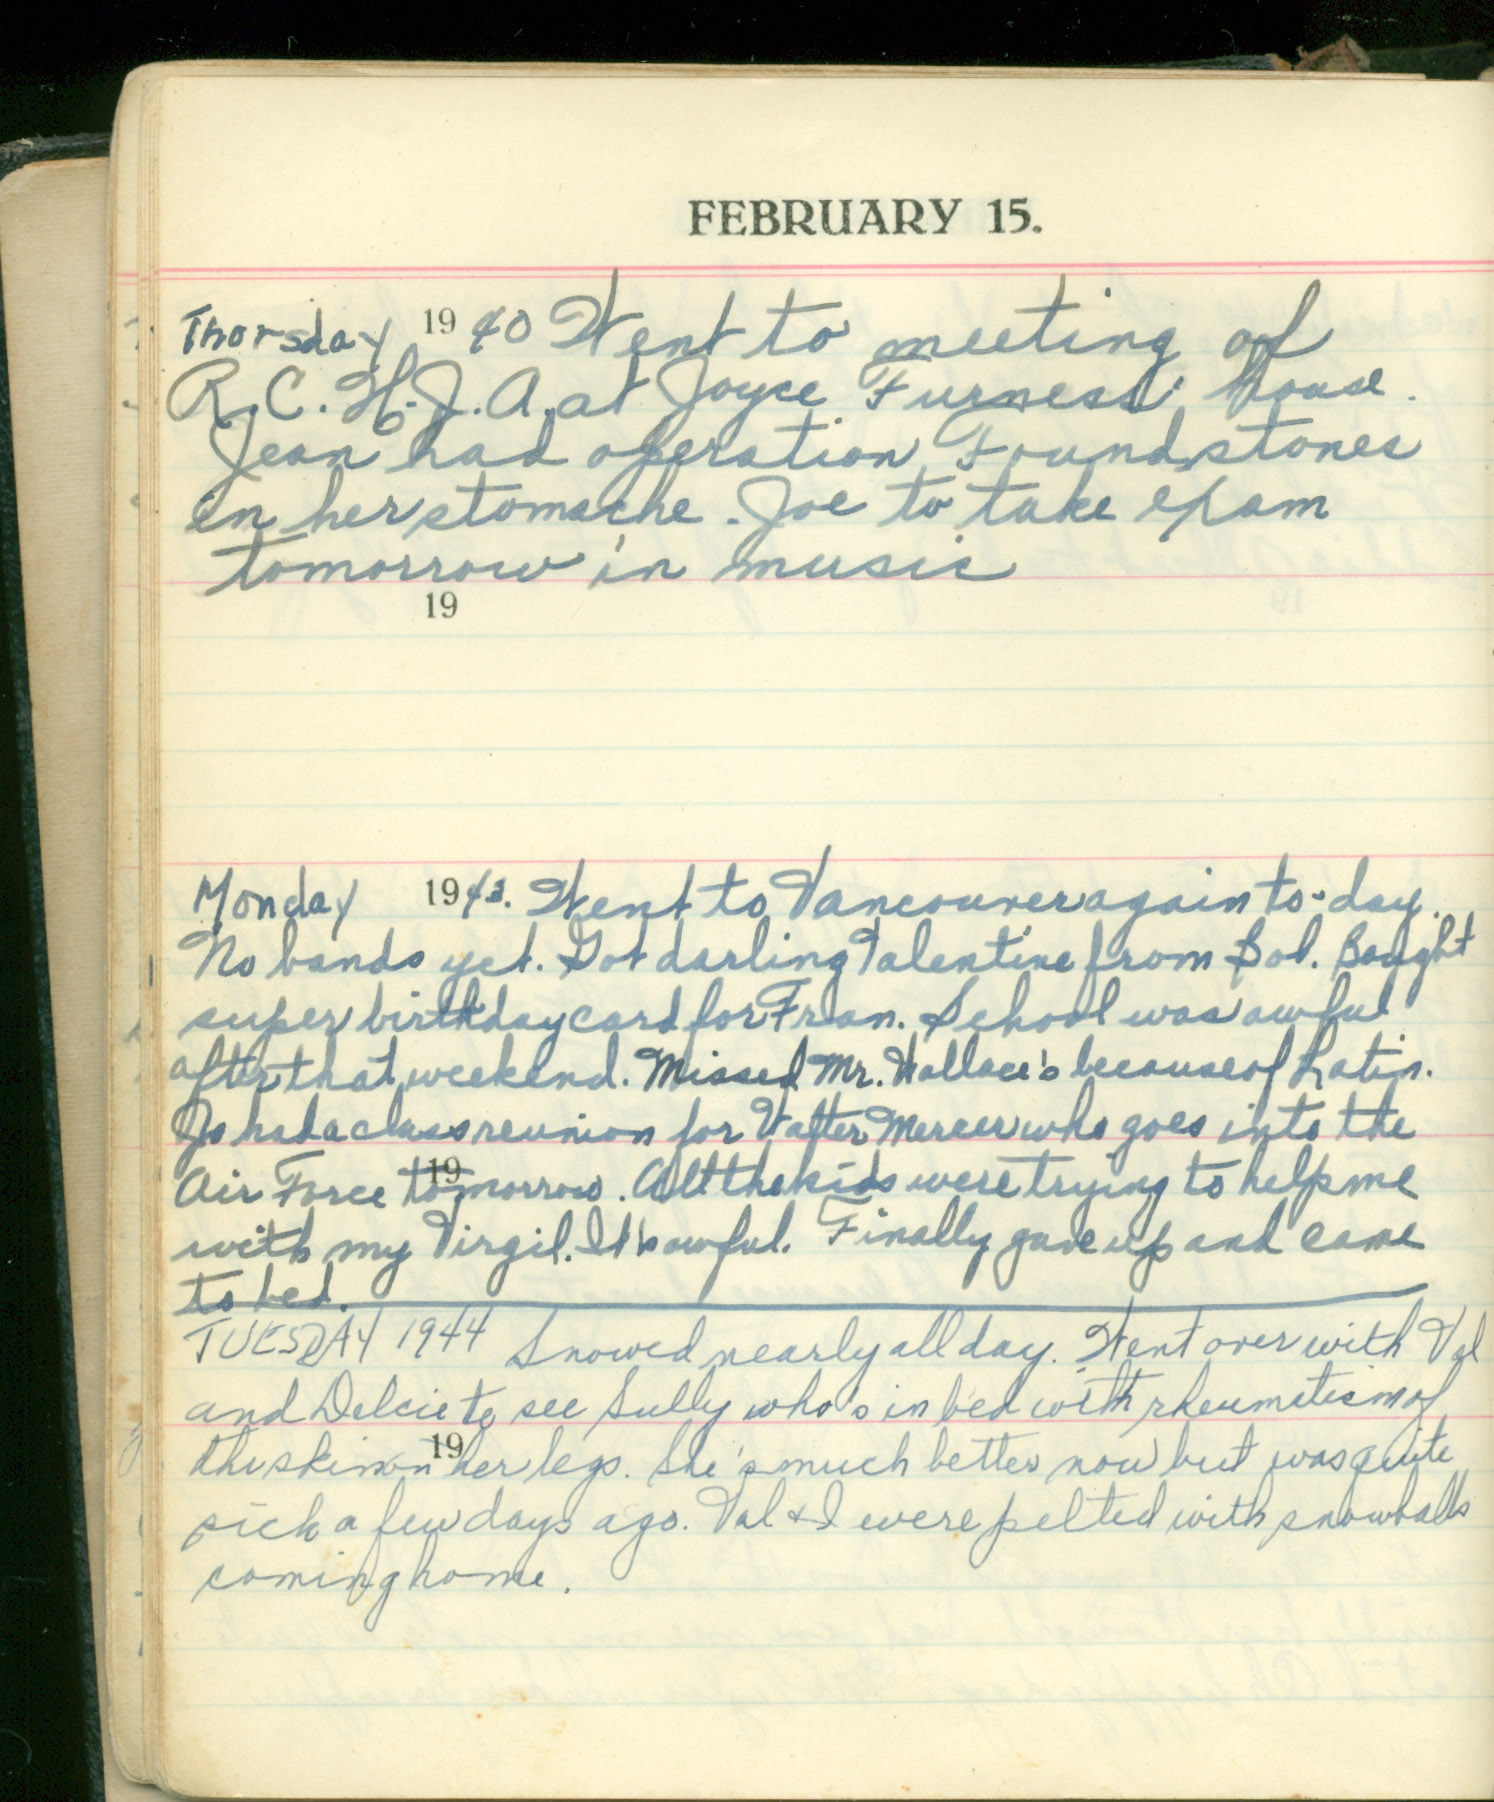 FEBRUARY 15.
Thorsday 1940 Went to meeting of
R.C.H.J.A. at Joyce Furness' house.
Jean had operation Found stones
in her stomache. Joe to take exam
tomorrow in music
19
Monday 1943. Went to Vancouver again to-day.
No bands yet. Got darling Valentine from Bob. Bought
super birthday card for Fran. School was awful
after that weekend. Missed Mr. Wallace's because of Latin.
Jo had a class reunion for Walter Mercer who goes into the
19
Air Force tomorrow. All the kids were trying to help me
with my Virgil. It's awful. Finally gave up and came
to bed.
TUESDAY 1944 Snowed nearly all day. Went over with Val
and Delcie to see Sully who's in bed with rheumatism of
19
the skin on her legs. She's much better now but was quite
sick a few days ago. Val & I were pelted with snowballs
coming home.